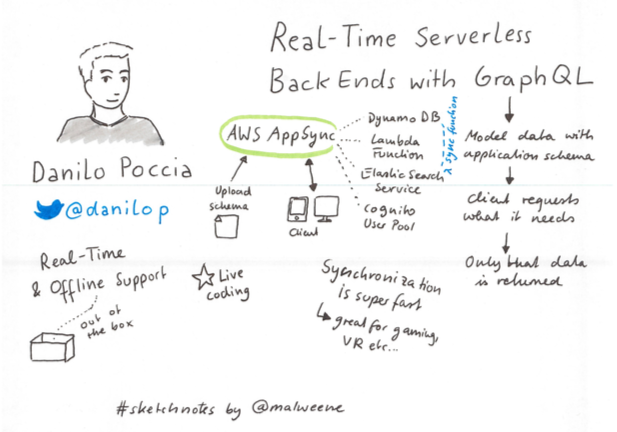 Real-Time Serverless
Back Ends with GraphQL
Danilo Poccia
@danilop
AWS AppSync
Upload
schema
Client
Dynamo DB
Lambda
Function
Elastic Search
Service
Cognito
User Pool
λ Sync function
Model data with
application schema
Client requests
what it needs
Only that data
is returned
Real-Time
& Offline Support
out of
the box
Live
coding
Synchronization
is super fast
great for gaming,
VR etc...
#sketchnotes by @malweene